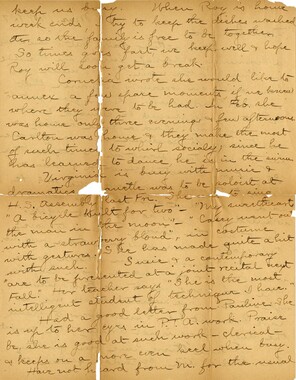 keep us busy. When Roy is home
week ends, I try to keep the dishes washed
so the family is free to be together.
So times goes fast we keep well & hope
Roy will soon get a break.
Cornelia wrote she would like to
annex a few spare moments if we knew
where they were to be had. In she
was home only three evenings & few afternoons
Carlton was home & they made the most
of such times to whirl socially, since he
has learned to dance he is in the swim
Virginia is busy with music &
dramatics was to be soloist at
H.S. Assembly last Fri. She is to sing
"A bicycle built for two" - "My sweetheart
the man in the moon". "Casey went on
with a strawberry blond" in costume
with gesture. She has made quite a hit
with such. Susie & a contemporary
are to be presented at a joint recital next
Fall. Her teacher says "She is the most
intelligent student of technique I have."
Had a good letter from Pauline - She
is up to her eyes in P.T.A. work. Praise
be, she is good at such work - clerical
& keeps on a even keel when busy.
Have not heard from M. for the usual